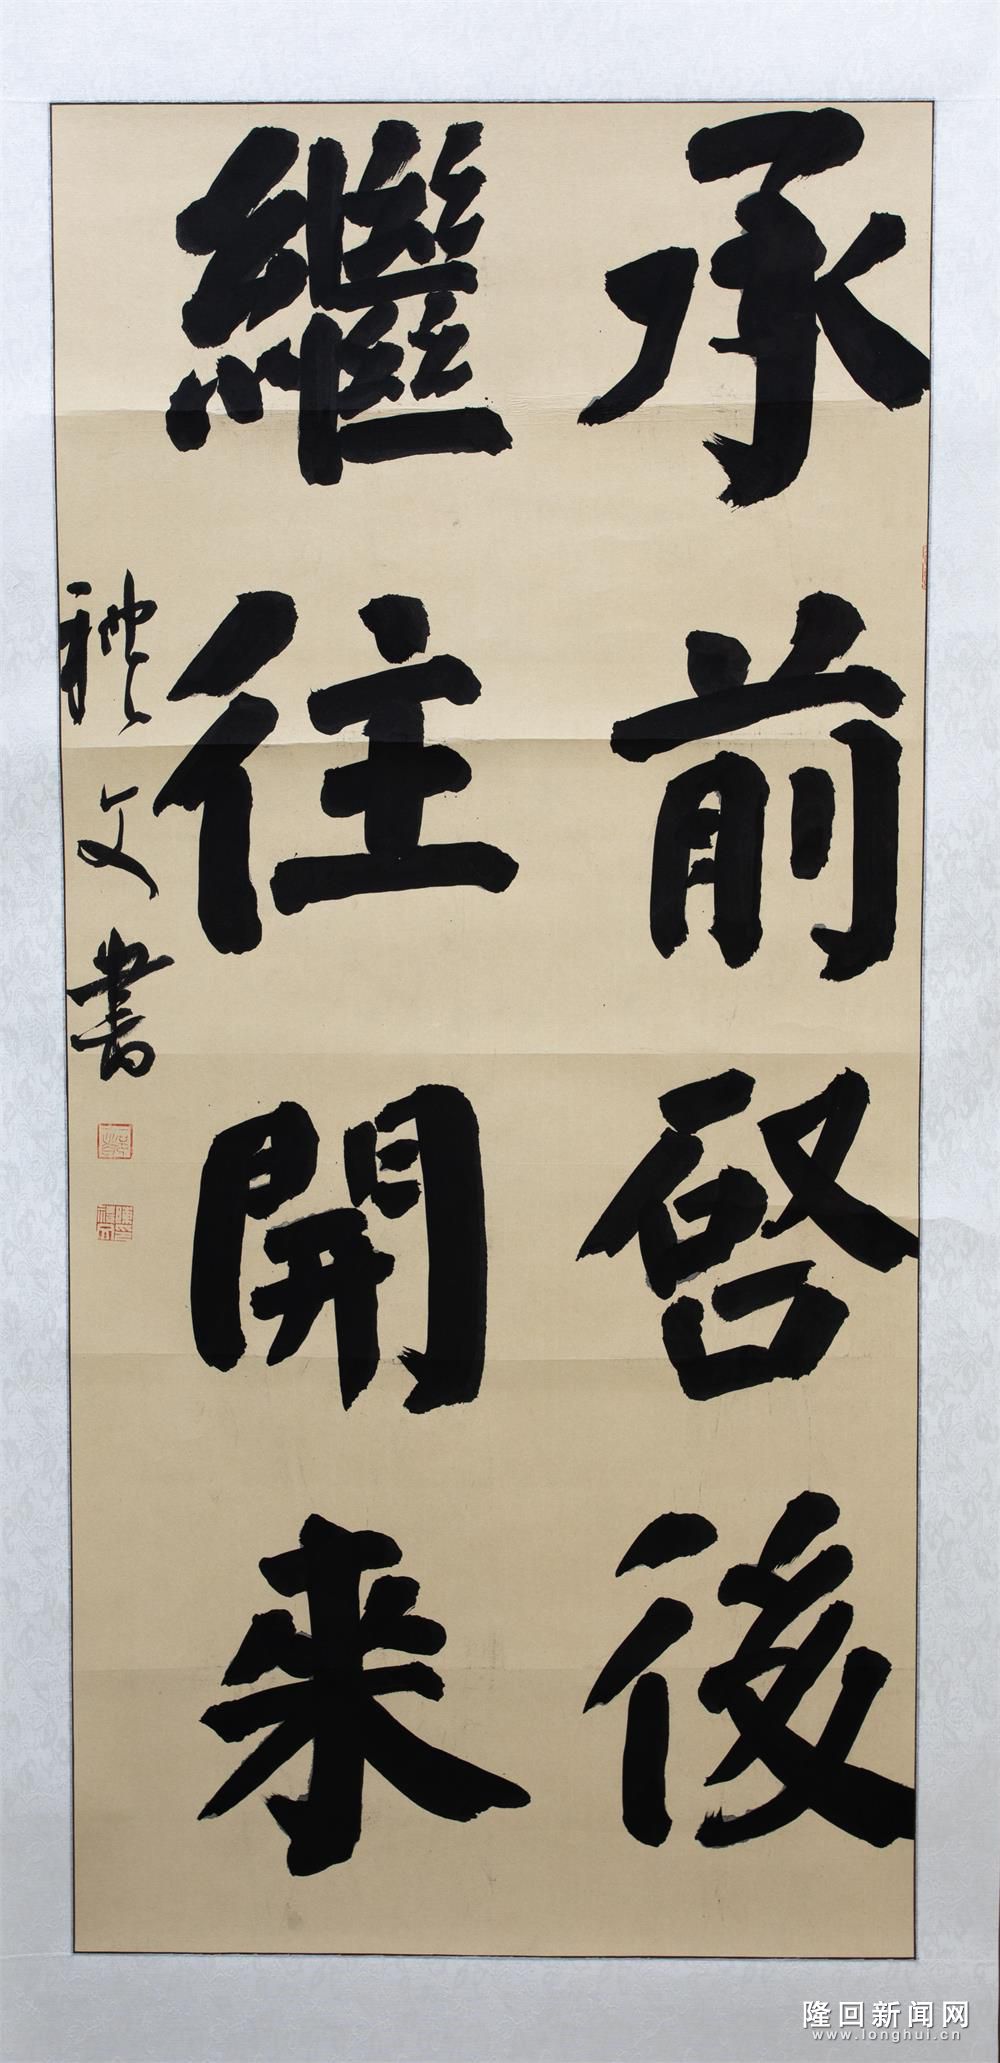 承前啓後
繼往開来
礼文書
隆回新闻网
www.longhui.cn